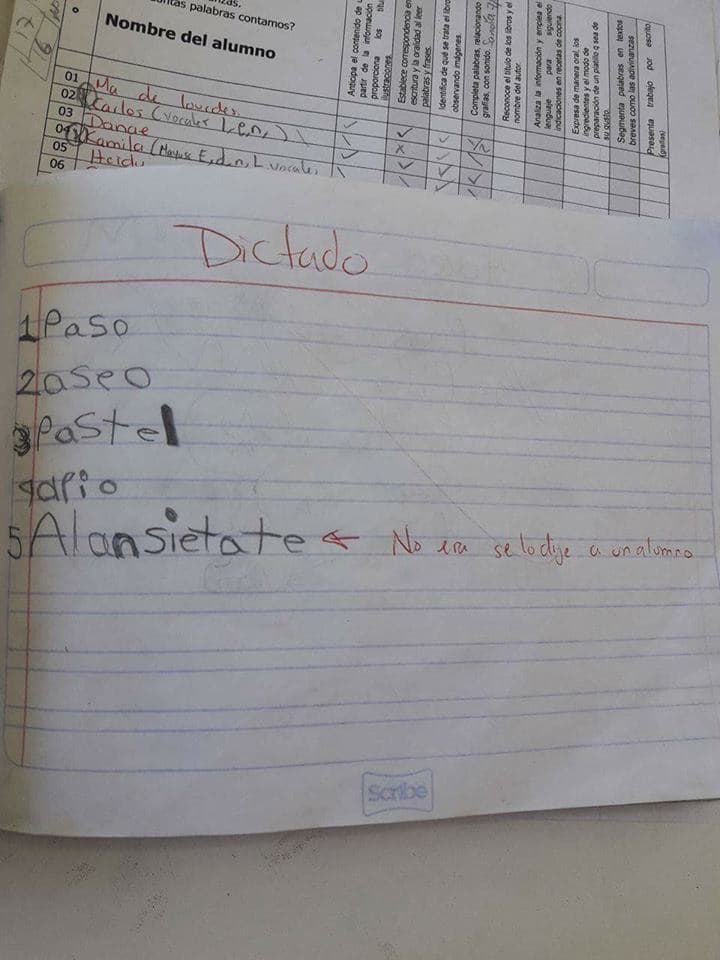 palabras contamos?
Nombre del alumno
Anticipa el contenido de
partir de la información
proporciona los
ilustraciones.
Establece correspondencia en
escritura y la oralidad al leer
palabras y frases.
Identifica de qué se trata el libro
observando imágenes.
Completa palabras relacionando
grafías, con sonido.
Reconoce el título de los libros y el
nombre del autor.
Analiza la información y emplea el
lenguaje para seguir
indicaciones en recetas de cocina.
Expresa de manera oral, los
ingredientes y el modo de
preparación de un platillo q sea de
su gusto.
Segmenta palabras en textos
breves como las adivinanzas
Presenta trabajo por escrito
(grafías)
01 Ma de lourdes
02 Carlos (vocales L, e, n, )
03 Danae
04 Kamila (Mayus E, d, n, L vocales
05 Heidy
06
Dictado
1 Paso
2 aseo
3 Pastel
4 apio
5 Alansietate ← No era se lo dije a un alumno
Scribe